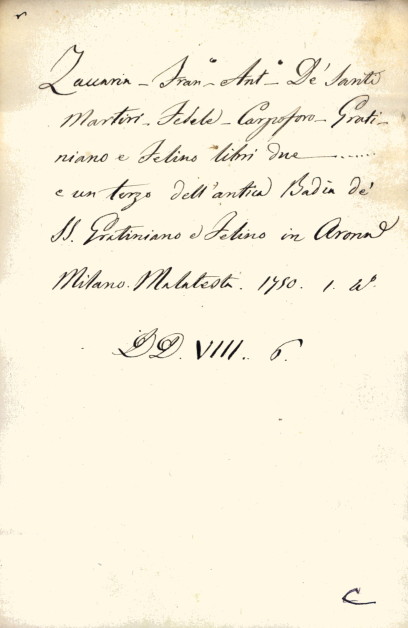 Zaccaria - Fran.º Ant.º De' Santi
Martiri - Fedele - Carpoforo - Grati-
niano e Felino libri due ———......
e un terzo dell'antica Badia de'
SS. Gratiniano e Felino in Arona
Milano. Malatesta. 1750. 1. 4º
DD. VIII. 6.
C